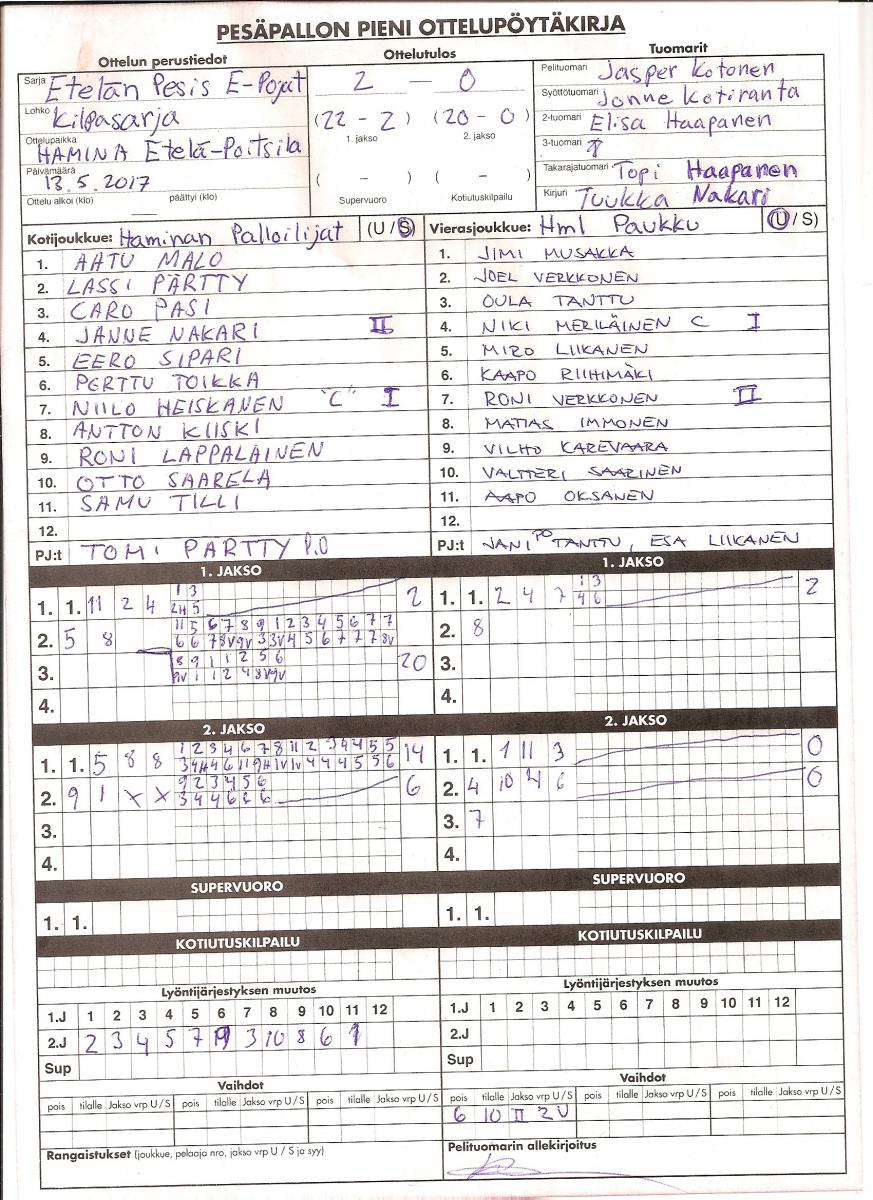 PESÄPALLON PIENI OTTELUPÖYTÄKIRJA
Ottelun perustiedot
Sarja Etelän Pesis E-Pojat
Lohko Kilpasarja
Ottelupaikka HAMINA Etelä-Poitsila
Päivämäärä 13.5.2017
Ottelu alkoi (klo) päättyi (klo)
Ottelutulos
2 — 0
(22 - 2) (20 - 0)
1. jakso 2. jakso
( - ) ( - )
Supervuoro Kotiutuskilpailu
Tuomarit
Pelituomari Jasper Kotonen
Syöttötuomari Jonne Kotiranta
2-tuomari Elisa Haapanen
3-tuomari
Takarajatuomari Topi Haapanen
Kirjuri Tuukka Nakari
Kotijoukkue: Haminan Palloilijat (U / S)
1. AATU MALO
2. LASSI PÄRTTY
3. CARO PASI
4. JANNE NAKARI II
5. EERO SIPARI
6. PERTTU TOIKKA
7. NIILO HEISKANEN "C" I
8. ANTTON KIISKI
9. RONI LAPPALAINEN
10. OTTO SAARELA
11. SAMU TILLI
12.
PJ:t TOMI PARTTY P.O
Vierasjoukkue: Hml Paukku (U / S)
1. JIMI MUSAKKA
2. JOEL VERKKONEN
3. OULA TANTTU
4. NIKI MERILÄINEN C I
5. MIRO LIIKANEN
6. KAAPO RIIHIMÄKI
7. RONI VERKKONEN II
8. MATIAS IMMONEN
9. VILHO KAREVAARA
10. VALTTERI SAARINEN
11. AAPO OKSANEN
12.
PJ:t JANI PO TANTTU, ESA LIIKANEN
1. JAKSO
1. 1. 11 2 4 1 3 2
2H 5
2. 5 8 11 5 6 7 8 9 1 2 3 4 5 6 7 7
6 6 7 8V 9V 3 3V 4 5 6 7 7 7 8V
3. 8 9 1 1 2 5 6 20
9V 1 1 2 4 8V 9V
4.
1. JAKSO
1. 1. 2 4 7 1 3 2
4 6
2. 8
3.
4.
2. JAKSO
1. 1. 5 8 8 1 2 3 4 6 7 8 11 2 3 4 4 5 5 14
3 4H 4 6 11 9H 1V 1V 4 4 4 5 5 6
2. 9 1 X X 9 2 3 4 5 6 6
3 4 4 6 6 6
3.
4.
2. JAKSO
1. 1. 1 11 3 0
2. 4 10 4 6 0
3. 7
4.
SUPERVUORO
1. 1.
SUPERVUORO
1. 1.
KOTIUTUSKILPAILU
KOTIUTUSKILPAILU
Lyöntijärjestyksen muutos
1.J 1 2 3 4 5 6 7 8 9 10 11 12
2.J 2 3 4 5 7 9 3 10 8 6 1
Sup
Lyöntijärjestyksen muutos
1.J 1 2 3 4 5 6 7 8 9 10 11 12
2.J
Sup
Vaihdot
pois tilalle Jakso vrp U / S pois tilalle Jakso vrp U / S pois tilalle Jakso vrp U / S
Vaihdot
pois tilalle Jakso vrp U / S pois tilalle Jakso vrp U / S pois tilalle Jakso vrp U / S
6 10 II 2U
Rangaistukset (joukkue, pelaaja nro, jakso vrp U / S ja syy)
Pelituomarin allekirjoitus